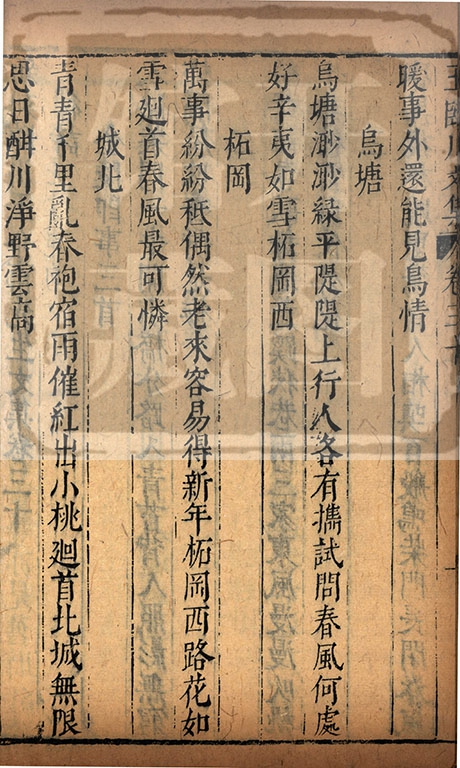 王臨川文集 卷三十
暖事外還能見鳥情
烏塘
烏塘渺渺綠平隄隄上行人各有攜試問春風何處
好辛夷如雪柘岡西
柘岡
萬事紛紛秪偶然老來容易得新年柘岡西路花如
雪廻首春風最可憐
城北
青青千里亂春袍宿雨催紅出小桃廻首北城無限
思日酣川淨野雲高